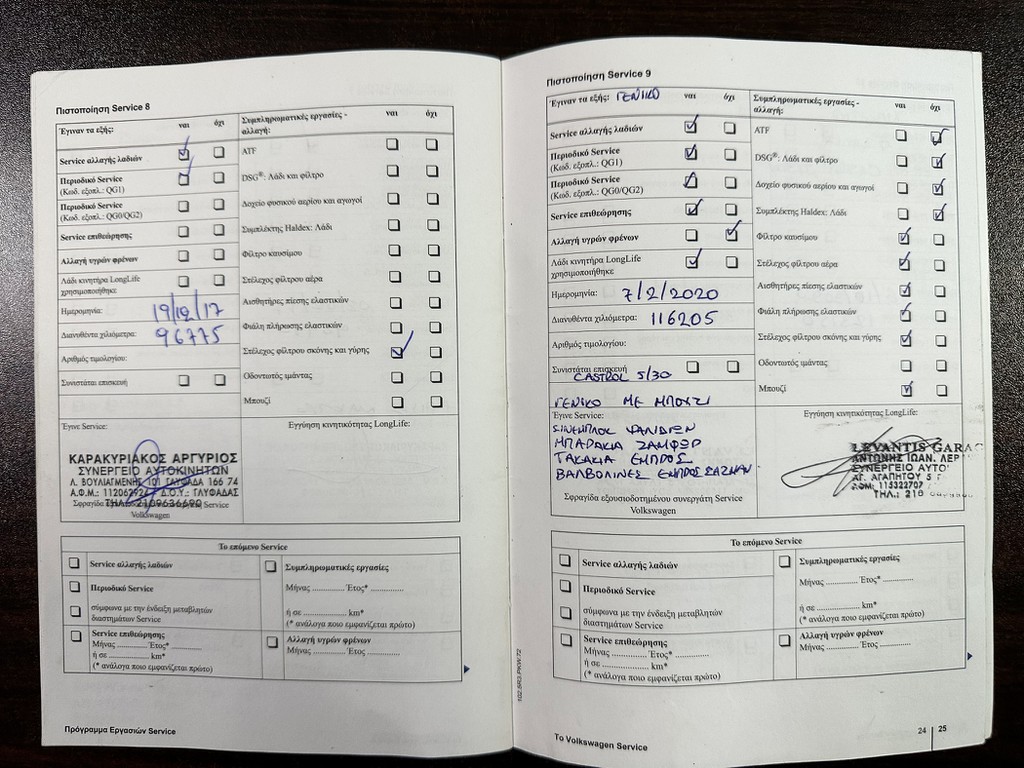 Πιστοποίηση Service 8
Έγιναν τα εξής: ναι όχι
Service αλλαγής λαδιών
Περιοδικό Service
(Κωδ. εξοπλ.: QG1)
Περιοδικό Service
(Κωδ. εξοπλ.: QG0/QG2)
Service επιθεώρησης
Αλλαγή υγρών φρένων
Λάδι κινητήρα LongLife
χρησιμοποιήθηκε
Ημερομηνία: 19/12/17
Διανυθέντα χιλιόμετρα: 96775
Αριθμός τιμολογίου:
Συνιστάται επισκευή
Συμπληρωματικές εργασίες - ναι όχι
αλλαγή:
ATF
DSG®: Λάδι και φίλτρο
Δοχείο φυσικού αερίου και αγωγοί
Συμπλέκτης Haldex: Λάδι
Φίλτρο καυσίμου
Στέλεχος φίλτρου αέρα
Αισθητήρες πίεσης ελαστικών
Φιάλη πλήρωσης ελαστικών
Στέλεχος φίλτρου σκόνης και γύρης
Οδοντωτός ιμάντας
Μπουζί
Έγινε Service:
Εγγύηση κινητικότητας LongLife:
ΚΑΡΑΚΥΡΙΑΚΟΣ ΑΡΓΥΡΙΟΣ
ΣΥΝΕΡΓΕΙΟ ΑΥΤΟΚΙΝΗΤΩΝ
Λ. ΒΟΥΛΙΑΓΜΕΝΗΣ 101 ΓΛΥΦΑΔΑ 166 74
Α.Φ.Μ.: Δ.Ο.Υ.: ΓΛΥΦΑΔΑΣ
ΤΗΛ.: 2109636690
Σφραγίδα Service
Volkswagen
Το επόμενο Service
Service αλλαγής λαδιών
Περιοδικό Service
σύμφωνα με την ένδειξη μεταβλητών
διαστημάτων Service
Service επιθεώρησης
Μήνας ............. Έτος* ...............
ή σε ..................... km*
(* ανάλογα ποιο εμφανίζεται πρώτο)
Συμπληρωματικές εργασίες
Μήνας ............. Έτος* ...............
ή σε ..................... km*
(* ανάλογα ποιο εμφανίζεται πρώτο)
Αλλαγή υγρών φρένων
Μήνας ............. Έτος ...............
Πρόγραμμα Εργασιών Service
Πιστοποίηση Service 9
Έγιναν τα εξής: ΓΕΝΙΚΟ ναι όχι
Service αλλαγής λαδιών
Περιοδικό Service
(Κωδ. εξοπλ.: QG1)
Περιοδικό Service
(Κωδ. εξοπλ.: QG0/QG2)
Service επιθεώρησης
Αλλαγή υγρών φρένων
Λάδι κινητήρα LongLife
χρησιμοποιήθηκε
Ημερομηνία: 7/2/2020
Διανυθέντα χιλιόμετρα: 116205
Αριθμός τιμολογίου:
Συνιστάται επισκευή
CASTROL 5/30
ΓΕΝΙΚΟ ΜΕ ΜΠΟΥΖΙ
Συμπληρωματικές εργασίες - ναι όχι
αλλαγή:
ATF
DSG®: Λάδι και φίλτρο
Δοχείο φυσικού αερίου και αγωγοί
Συμπλέκτης Haldex: Λάδι
Φίλτρο καυσίμου
Στέλεχος φίλτρου αέρα
Αισθητήρες πίεσης ελαστικών
Φιάλη πλήρωσης ελαστικών
Στέλεχος φίλτρου σκόνης και γύρης
Οδοντωτός ιμάντας
Μπουζί
Έγινε Service:
ΣΙΝΕΜΠΛΟΚ ΨΑΛΙΔΙΩΝ
ΜΠΑΡΑΚΙΑ ΖΑΜΦΟΡ
ΤΑΚΑΚΙΑ ΕΜΠΡΟΣ
ΒΑΛΒΟΛΙΝΕΣ ΕΜΠΡΟΣ ΣΑΖΜΑΝ
Σφραγίδα εξουσιοδοτημένου συνεργάτη Service
Volkswagen
Εγγύηση κινητικότητας LongLife:
LEVANTIS GARAG
ΑΝΤΩΝΗΣ ΙΩΑΝ. ΛΕΡ
ΣΥΝΕΡΓΕΙΟ ΑΥΤΟ
ΑΓ. ΑΓΑΠΗΤΟΥ 5
ΑΦΜ: 115322707
ΤΗΛ.: 210
Το επόμενο Service
Service αλλαγής λαδιών
Περιοδικό Service
σύμφωνα με την ένδειξη μεταβλητών
διαστημάτων Service
Service επιθεώρησης
Μήνας ............. Έτος* ...............
ή σε ..................... km*
(* ανάλογα ποιο εμφανίζεται πρώτο)
Συμπληρωματικές εργασίες
Μήνας ............. Έτος* ...............
ή σε ..................... km*
(* ανάλογα ποιο εμφανίζεται πρώτο)
Αλλαγή υγρών φρένων
Μήνας ............. Έτος ...............
102.5R3.PKW.72
Το Volkswagen Service
24 | 25